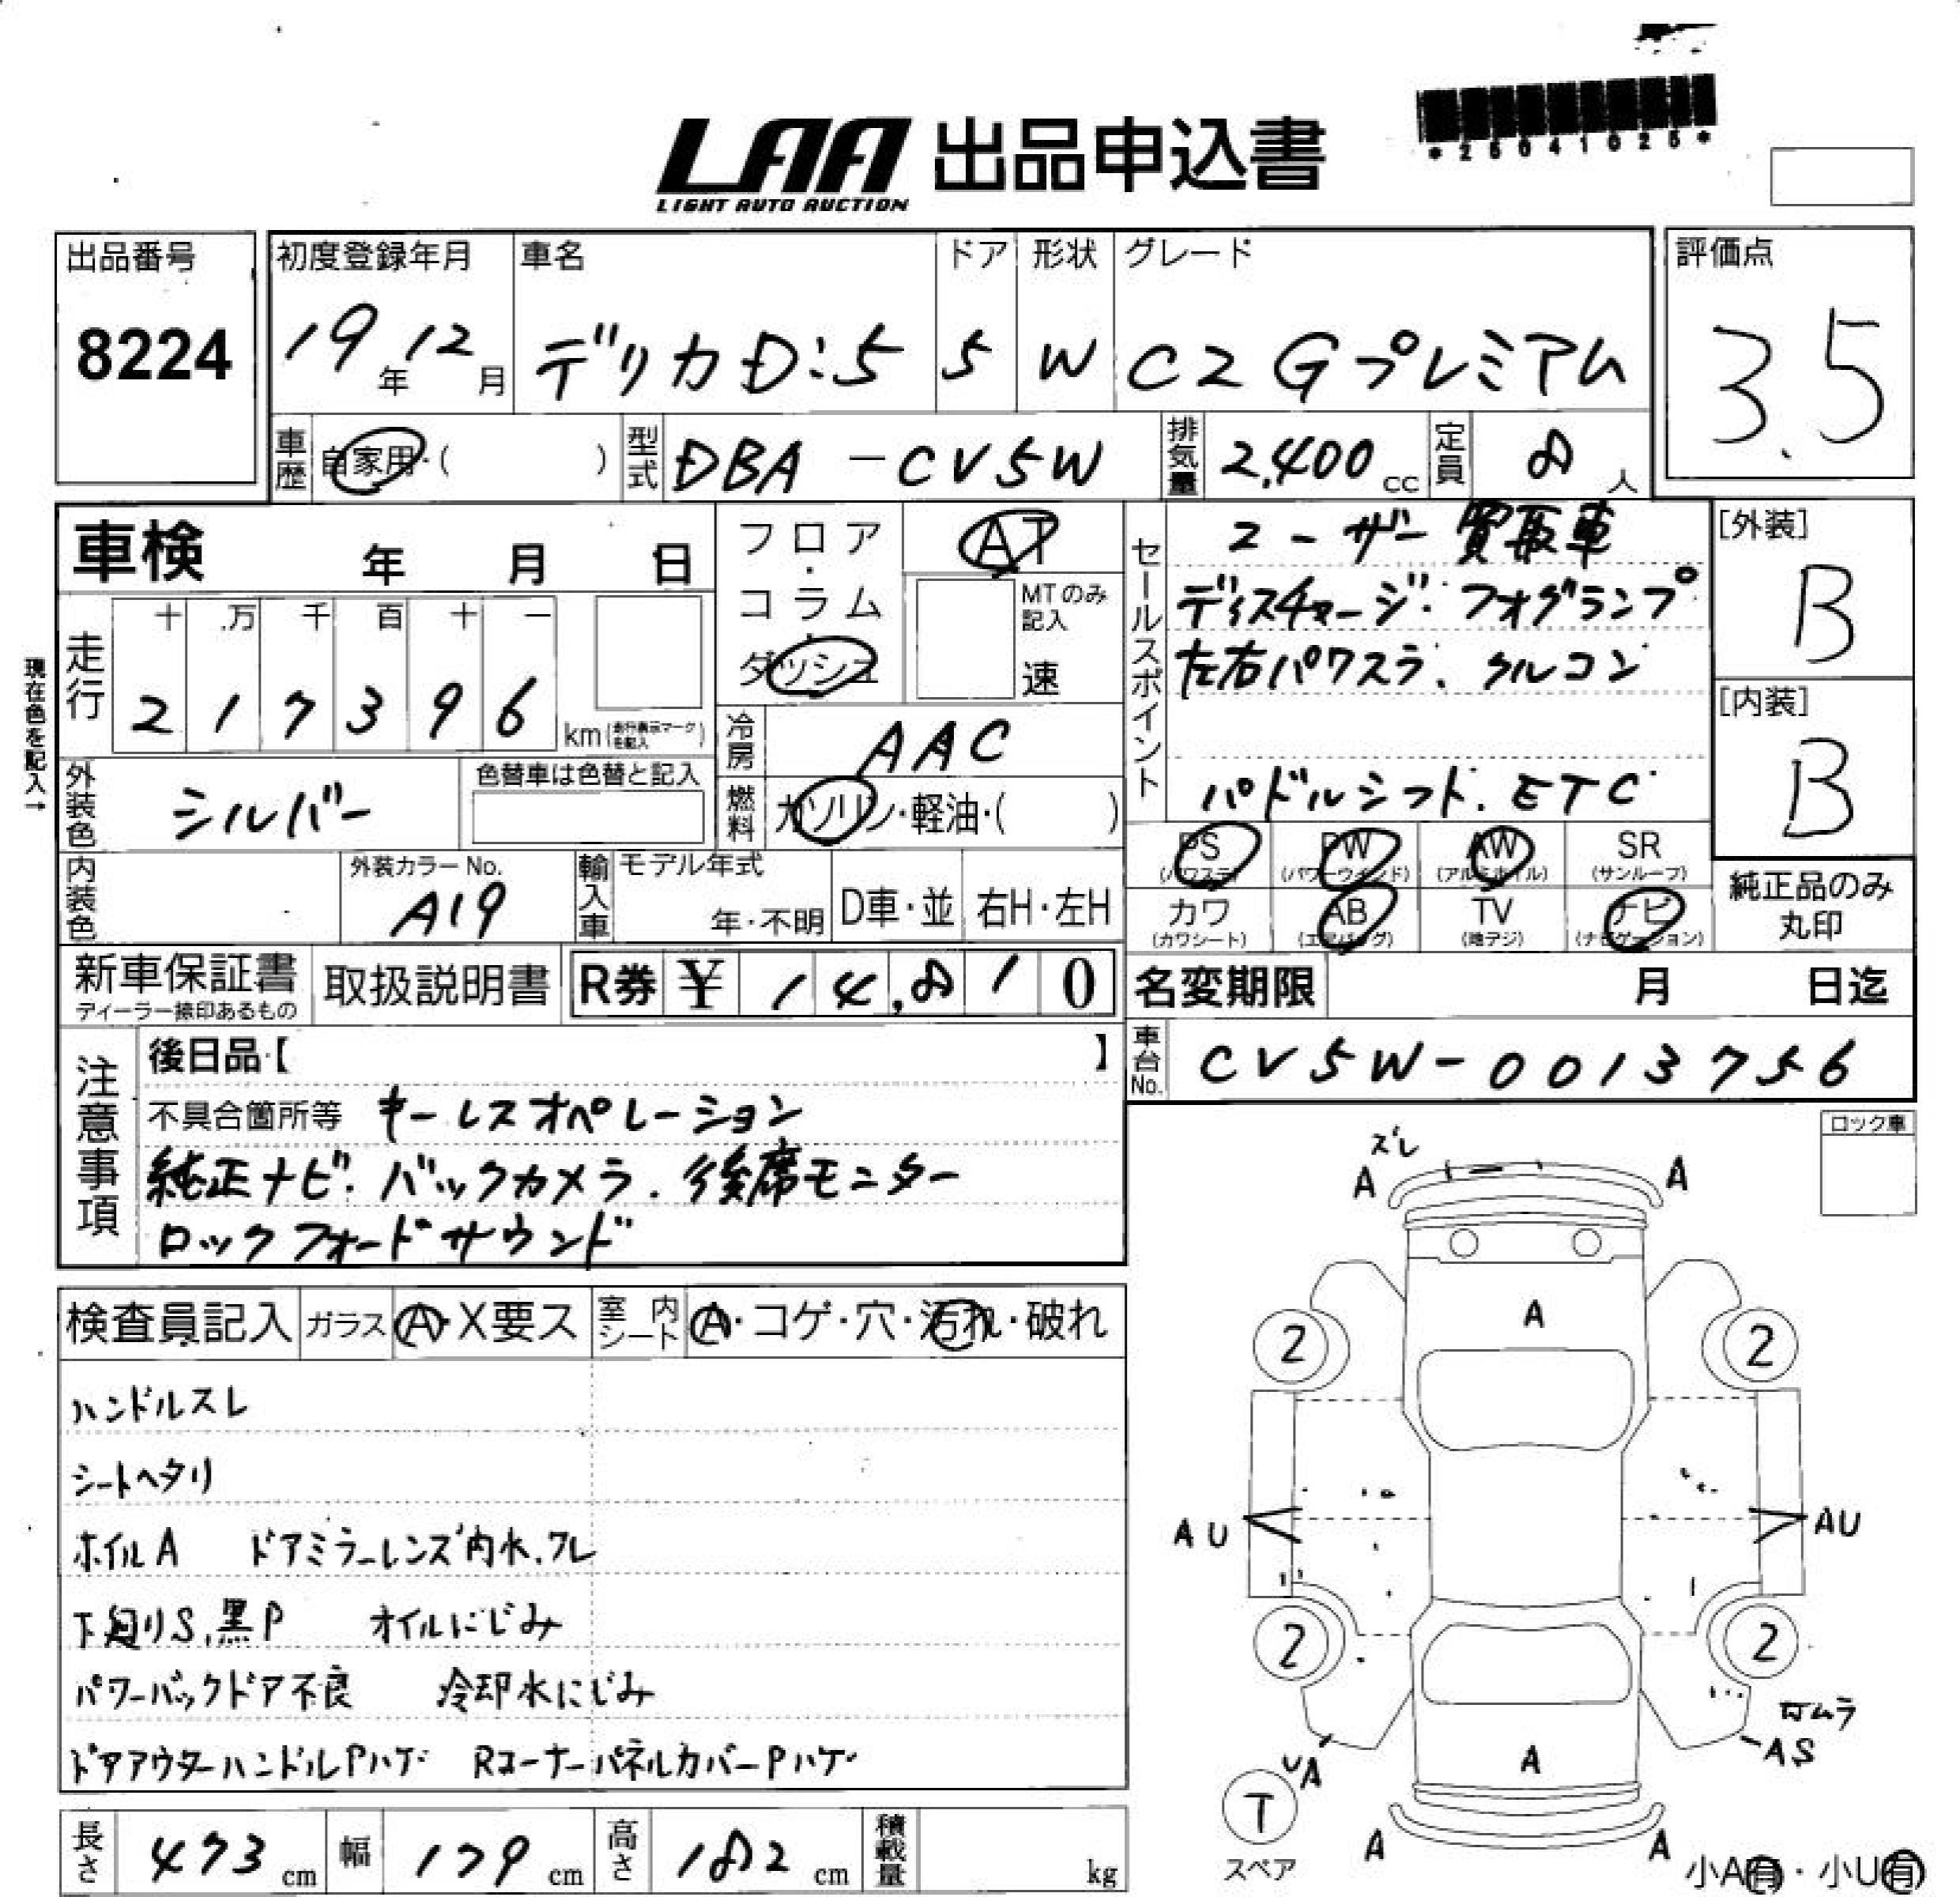 *25041025*
LAA 出品申込書
LIGHT AUTO AUCTION
出品番号
8224
初度登録年月 車名 ドア 形状 グレード
19年12月 デリカD:5 5 W C2 Gプレミアム
評価点
3.5
車歴 自家用・( ) 型式 DBA-CV5W 排気量 2,400cc 定員 8人
車検 年 月 日
フロア・コラム・ダッシュ
AT
MTのみ記入
速
セールスポイント
ユーザー買取車
ディスチャージ・フォグランプ
左右パワスラ.クルコン
パドルシフト.ETC
[外装]
B
[内装]
B
現在色を記入→
走行 十 万 千 百 十 一
217396 km(走行表示マークを記入)
冷房 AAC
外装色 シルバー 色替車は色替と記入
燃料 ガソリン・軽油・( )
内装色 外装カラーNo. A19
輸入車 モデル年式 年・不明 D車・並 右H・左H
PS (パワステ) PW (パワーウインド) AW (アルミホイル) SR (サンルーフ)
カワ (カワシート) AB (エアバッグ) TV (地デジ) ナビ (ナビゲーション)
純正品のみ
丸印
新車保証書 取扱説明書 R券 ¥ 14,810
ディーラー捺印あるもの
名変期限 月 日迄
車台No. CV5W-0013756
注意事項
後日品【 】
不具合箇所等 キーレスオペレーション
純正ナビ・バックカメラ.後席モニター
ロックフォードサウンド
ロック車
検査員記入 ガラス A・X要ス 室内シート A・コゲ・穴・汚れ・破れ
ハンドルスレ
シートヘタリ
ホイルA ドアミラーレンズ内水.ワレ
下廻りS.黒P オイルにじみ
パワーバックドア不良 冷却水にじみ
ドアアウターハンドルPハゲ Rコーナーパネルカバー Pハゲ
ズレ
A A
A
2 2
AU AU
2 2
ムラ
AS
UA
A
T
スペア
A A
小A有・小U有
長さ 473cm 幅 179cm 高さ 182cm 積載量 kg